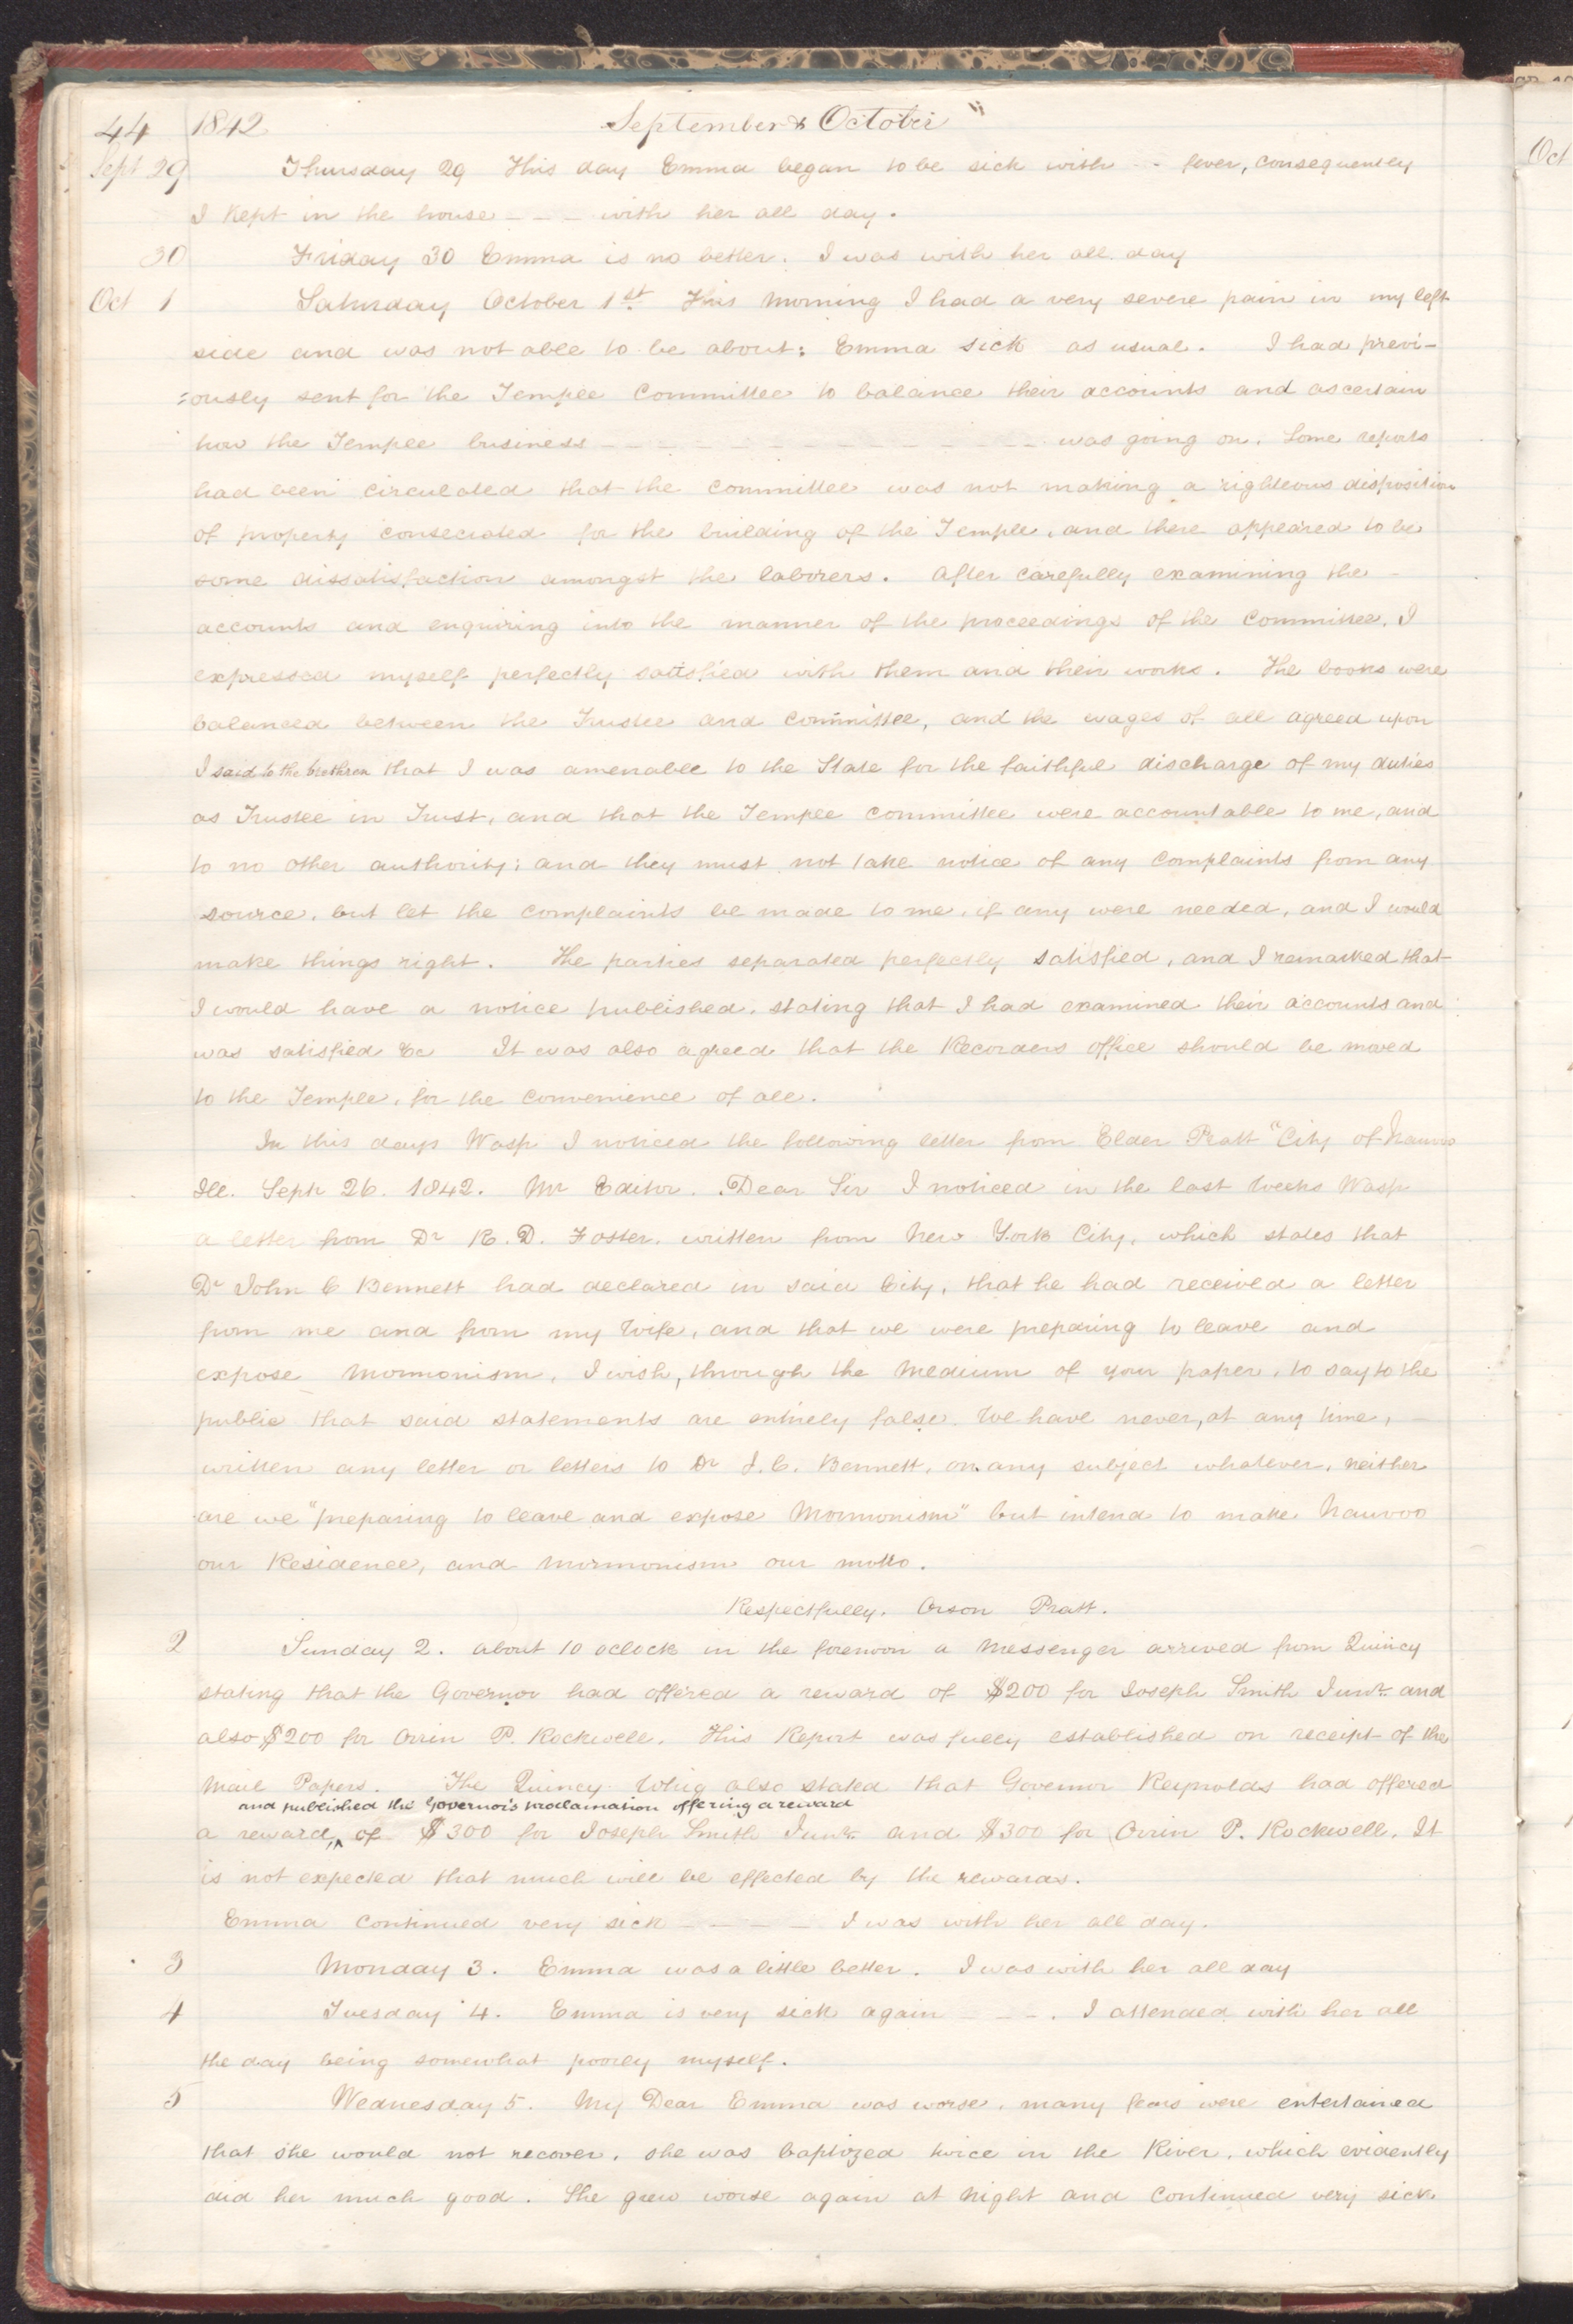 44 1842 September & October "
Sept 29 Thursday 29 This day Emma began to be sick with - - fever, consequently
I kept in the house - - - with her all day.
30 Friday 30 Emma is no better. I was with her all day
Oct 1 Saturday October 1st. This morning I had a very severe pain in my left
side and was not able to be about; Emma sick as usual. I had previ-
=ously sent for the Temple Committee to balance their accounts and ascertain
how the Temple business - - - - - - - - - - - - was going on. Some reports
had been circulated that the committee was not making a righteous disposition
of property consecrated for the building of the Temple, and there appeared to be
some dissatisfaction amongst the laborers. After carefully examining the -
accounts and enquiring into the manner of the proceedings of the Committee, I
expressed myself perfectly satisfied with them and their works. The books were
balanced between the Trustee and committee, and the wages of all agreed upon
I said to the brethren that I was amenable to the State for the faithful discharge of my duties
as Trustee in Trust, and that the Temple committee were accountable to me, and
to no other authority; and they must not take notice of any complaints from any
source, but let the complaints be made to me, if any were needed, and I would
make things right. The parties separated perfectly satisfied, and I remarked that
I would have a notice published, stating that I had examined their accounts and
was satisfied &c It was also agreed that the Recorders office should be moved
to the Temple, for the convenience of all.
In this days Wasp I noticed the following letter from Elder Pratt "City of Nauvoo
Ill. Sept 26. 1842. Mr Editor. Dear Sir I noticed in the last weeks Wasp
a letter from Dr R. D. Foster, written from New York City, which states that
Dr John C Bennett had declared in said City, that he had received a letter
from me and from my wife, and that we were preparing to leave and
expose mormonism, I wish, through the medium of your paper, to say to the
public that said statements are entirely false. We have never, at any time,
written any letter or letters to Dr J. C. Bennett, on any subject whatever, neither
are we "preparing to leave and expose Mormonism" but intend to make Nauvoo
our Residence, and mormonism our motto.
Respectfully. Orson Pratt.
2 Sunday 2. about 10 oclock in the forenoon a messenger arrived from Quincy
stating that the Governor had offered a reward of $200 for Joseph Smith Junr. and
also $200 for Orrin P. Rockwell. This Report was fully established on receipt of the
mail Papers. The Quincy Whig also stated that Governor Reynolds had offered
and published the Governor's proclamation offering a reward
a reward, ^ of $300 for Joseph Smith Junr. and $300 for Orrin P. Rockwell. It
is not expected that much will be effected by the rewards.
Emma continued very sick - - - - I was with her all day.
3 Monday 3. Emma was a little better. I was with her all day
4 Tuesday 4. Emma is very sick again - - - . I attended with her all
the day being somewhat poorly myself.
5 Wednesday 5. My Dear Emma was worse, many fears were entertained
that she would not recover. she was baptized twice in the River, which evidently
did her much good. She grew worse again at night and continued very sick
Oct